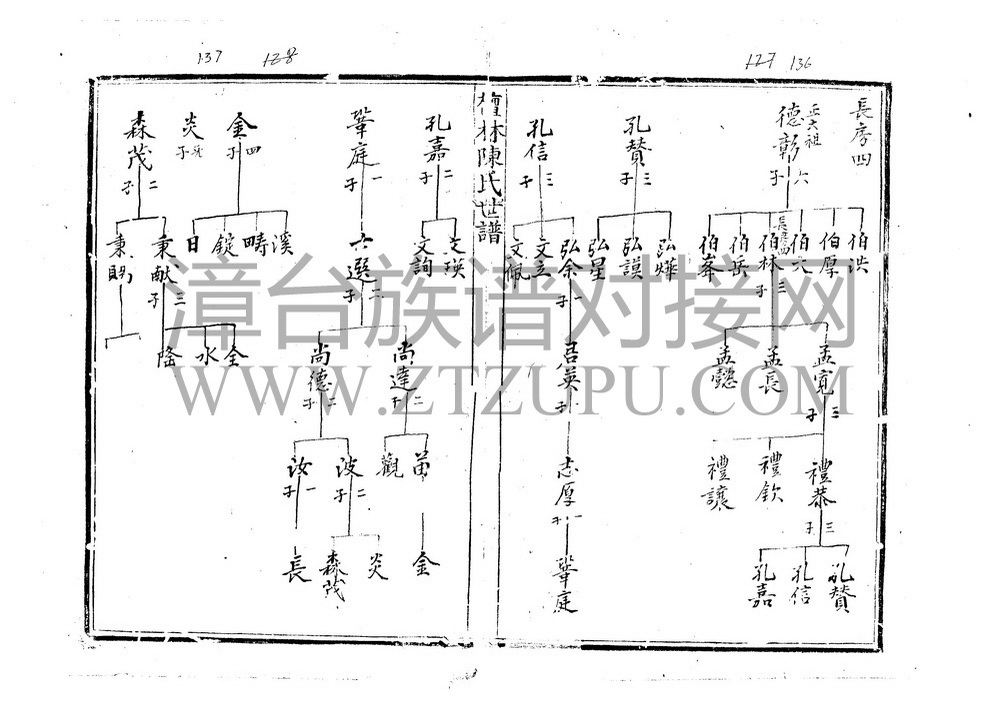 137
128
127
136
長房四
五大祖
德彰
六子
伯洪
伯厚
伯六
長房
伯林
三子
伯岳
伯峯
孟寬
三子
孟長
孟懿
禮恭
三子
禮欽
禮讓
孔贊
孔信
孔嘉
孔贊
三子
弘燁
弘謨
弘星
孔信
三子
弘余
一子
文立
文佩
呂英
一子
志厚
一子
鞏庭
檀林陳氏世譜
孔嘉
二子
文瑛
文詢
鞏庭
一子
六選
二子
尚達
二子
尚德
二子
苗
觀
波
二子
汝
一子
金
炎
森茂
長
金
四子
溪
疇
錠
日
炎
子
森茂
二子
秉獻
三子
秉賜
金
水
隆
漳台族谱对接网
WWW.ZTZUPU.COM